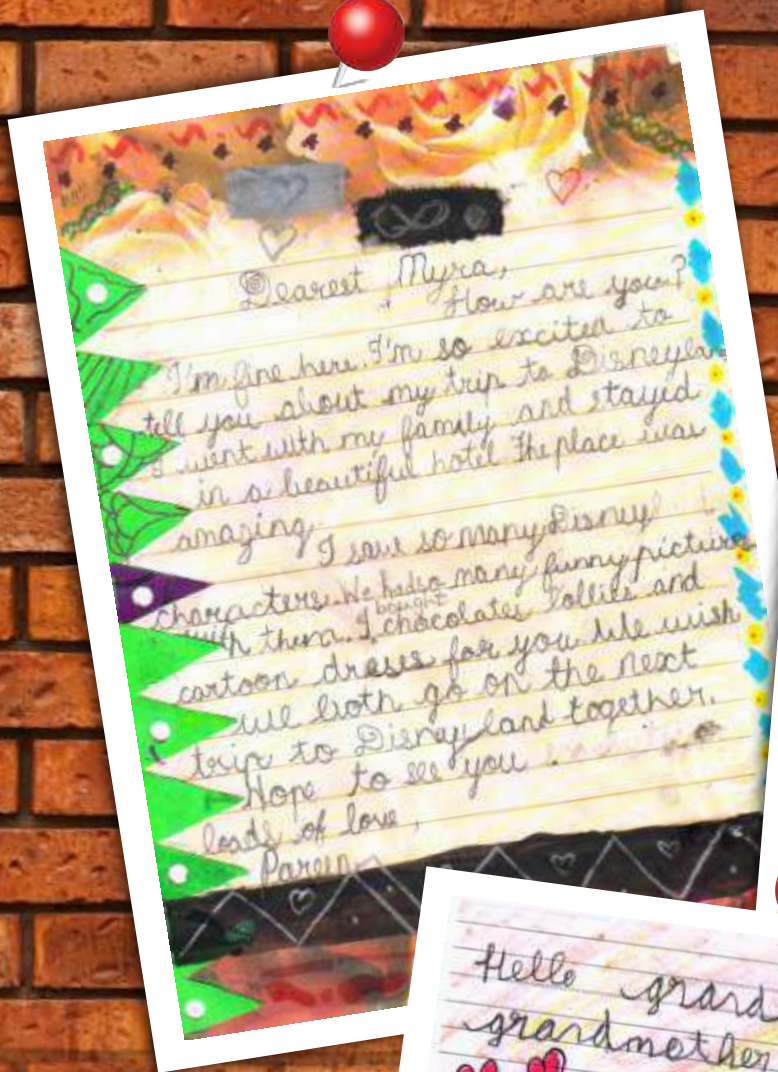 Dearest Myra,
How are you?
I'm fine here. I'm so excited to
tell you about my trip to Disneyland
I went with my family and stayed
in a beautiful hotel. The place was
amazing.
I saw so many Disney
characters. We had so many funny pictures
with them. I bought chocolates lollies and
cartoon dreses for you. We wish
we both go on the next
trip to Disneyland together.
Hope to see you.
loads of love,
Pareen
Hello grand
grandmother